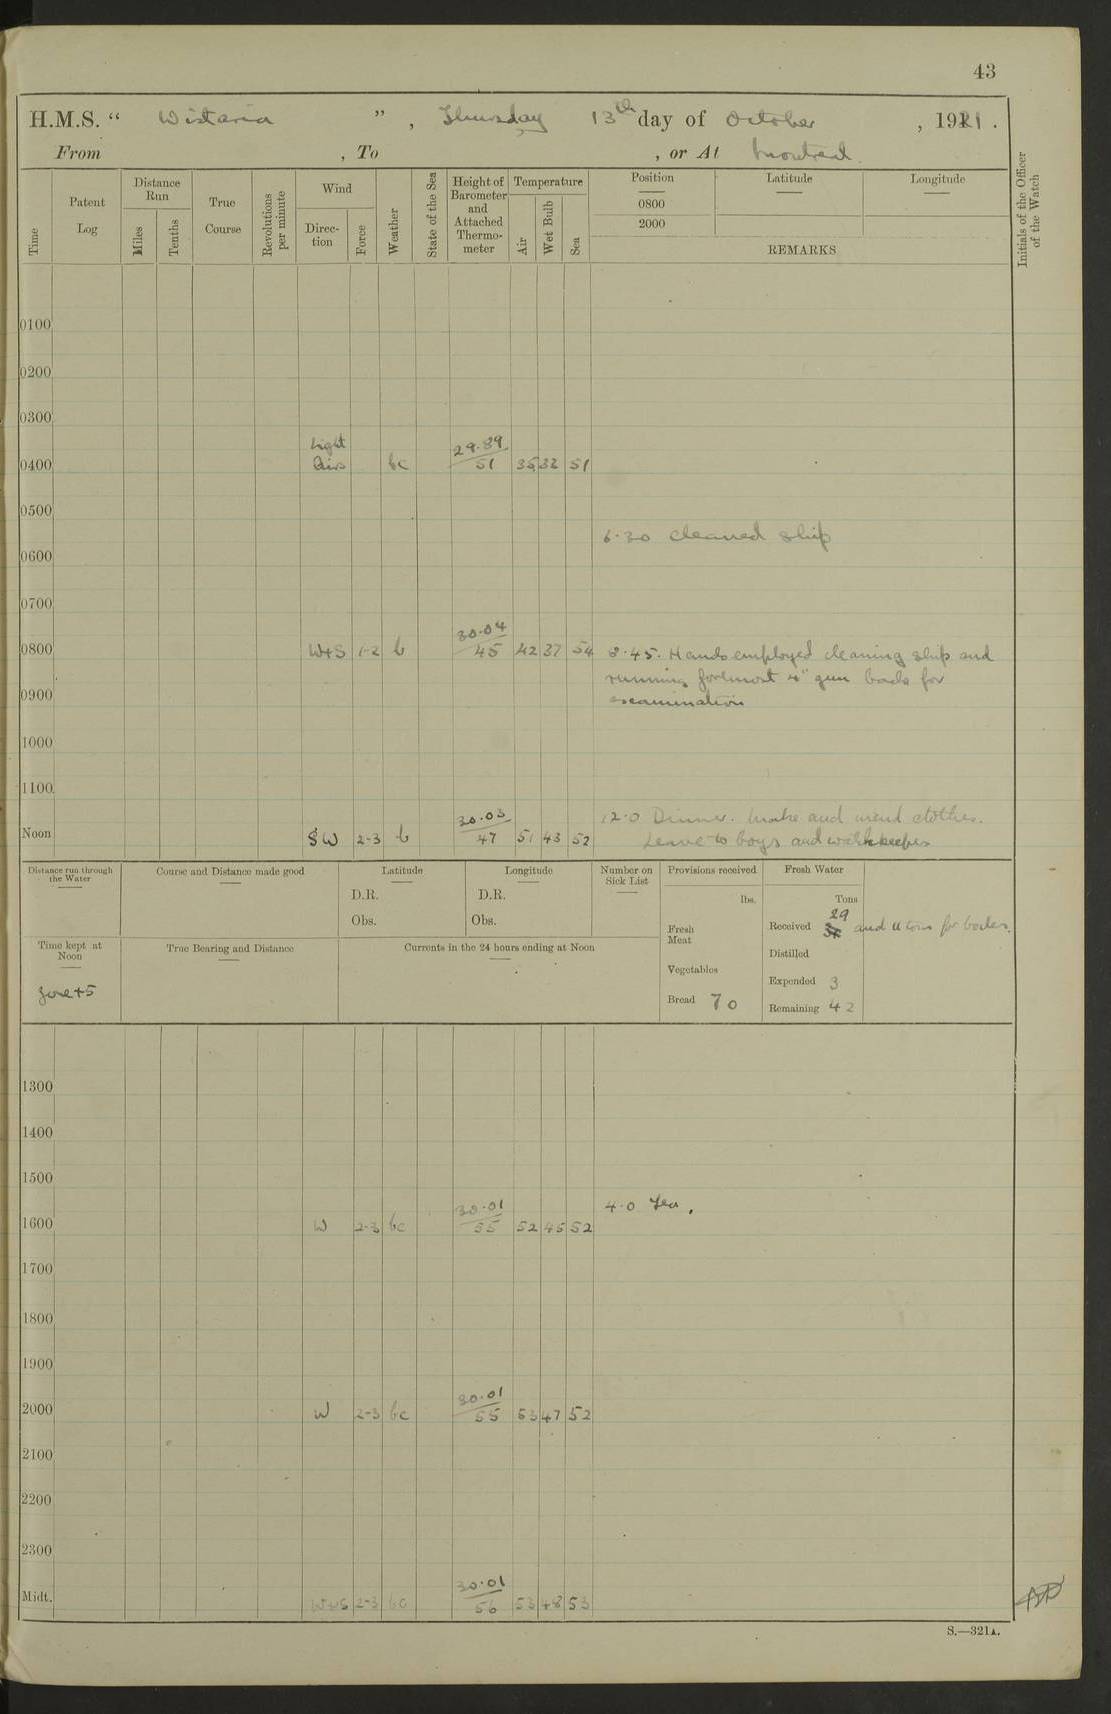 43
H.M.S. “ Wistaria ” , Thursday 13th day of October , 1921 .
From , To , or At Montreal.
Time
Patent Log
Distance Run
Miles
Tenths
True Course
Revolutions per minute
Wind
Direc- tion
Force
Weather
State of the Sea
Height of Barometer and Attached Thermo- meter
Temperature
Air
Wet Bulb
Sea
Position
Latitude
Longitude
0800
2000
REMARKS
Initials of the Officer of the Watch
0100
0200
0300
Light 29.89
0400 Airs bc 51 35 32 51
0500
6.30 cleaned ship
0600
0700
30.04
0800 W+S 1-2 b 45 42 37 54 8.45. Hands employed cleaning ship and
running foremost 4" gun back for
0900
examination
1000
1100
30.03 12.0 Dinner. Make and mend clothes.
Noon SW 2-3 b 47 51 43 52 Leave to boys and watchkeepers
Distance run through the Water
Course and Distance made good
Latitude
D.R.
Obs.
Longitude
D.R.
Obs.
Number on Sick List
Provisions received
lbs.
Fresh Meat
Vegetables
Bread 70
Fresh Water
Tons
29
Received and 11 tons for boilers.
Distilled
Expended 3
Remaining 42
Time kept at Noon
Zone +5
True Bearing and Distance
Currents in the 24 hours ending at Noon
1300
1400
1500
30.01 4.0 Tea.
1600 W 2-3 bc 55 52 45 52
1700
1800
1900
30.01
2000 W 2-3 bc 55 53 47 52
2100
2200
2300
30.01
Midt. 2-3 bc 56 53 48 53
S.—321A.